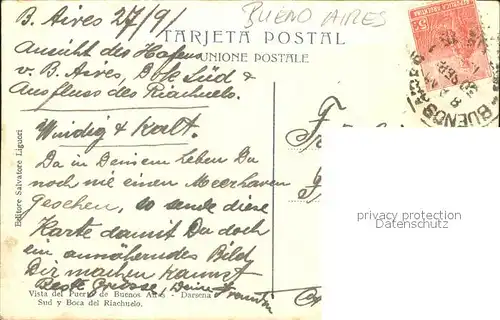 B. Aires 27/9/
BUENO AIRES
TARJETA POSTAL
UNIONE POSTALE
Ansicht des Hafens
v. B. Aires, Süd &
Ausfluss des Riachuelo.
Windig & kalt.
Da in Deinem Leben Du
noch nie einen Meerhaven
gesehen, so sende diese
Karte damit Du doch
ein annäherndes Bild
Dir machen kannst
Beste Grüsse, Deine
Vista del Puerto de Buenos Aires - Darsena
Sud y Boca del Riachuelo.
Editore Salvatore Ligucci
REPUBLICA ARGENTINA
5
BUENOS AIRES
privacy protection
Datenschutz.